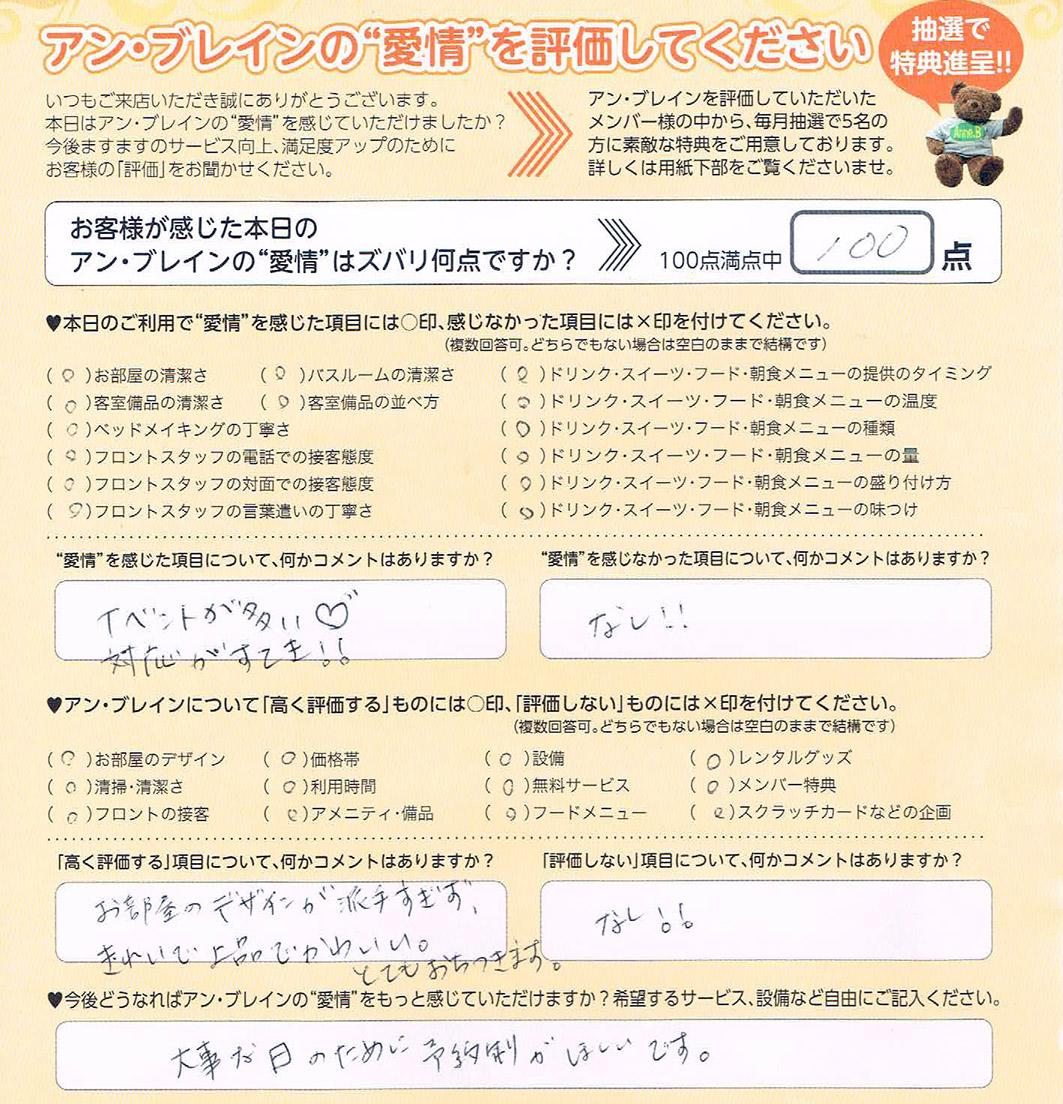 アン・ブレインの“愛情”を評価してください
抽選で
特典進呈!!
いつもご来店いただき誠にありがとうございます。
本日はアン・ブレインの“愛情”を感じていただけましたか?
今後ますますのサービス向上、満足度アップのために
お客様の「評価」をお聞かせください。
アン・ブレインを評価していただいた
メンバー様の中から、毎月抽選で5名の
方に素敵な特典をご用意しております。
詳しくは用紙下部をご覧くださいませ。
Anne.B
お客様が感じた本日の
アン・ブレインの“愛情”はズバリ何点ですか?
100点満点中 100 点
♥本日のご利用で“愛情”を感じた項目には○印、感じなかった項目には×印を付けてください。
(複数回答可。どちらでもない場合は空白のままで結構です)
(○)お部屋の清潔さ (○)バスルームの清潔さ (○)ドリンク・スイーツ・フード・朝食メニューの提供のタイミング
(○)客室備品の清潔さ (○)客室備品の並べ方 (○)ドリンク・スイーツ・フード・朝食メニューの温度
(○)ベッドメイキングの丁寧さ (○)ドリンク・スイーツ・フード・朝食メニューの種類
(○)フロントスタッフの電話での接客態度 (○)ドリンク・スイーツ・フード・朝食メニューの量
(○)フロントスタッフの対面での接客態度 (○)ドリンク・スイーツ・フード・朝食メニューの盛り付け方
(○)フロントスタッフの言葉遣いの丁寧さ (○)ドリンク・スイーツ・フード・朝食メニューの味つけ
“愛情”を感じた項目について、何かコメントはありますか?
イベントが多い♡
対応がすてき!!
“愛情”を感じなかった項目について、何かコメントはありますか?
なし!!
♥アン・ブレインについて「高く評価する」ものには○印、「評価しない」ものには×印を付けてください。
(複数回答可。どちらでもない場合は空白のままで結構です)
(○)お部屋のデザイン (○)価格帯 (○)設備 (○)レンタルグッズ
(○)清掃・清潔さ (○)利用時間 (○)無料サービス (○)メンバー特典
(○)フロントの接客 (○)アメニティ・備品 (○)フードメニュー (○)スクラッチカードなどの企画
「高く評価する」項目について、何かコメントはありますか?
お部屋のデザインが派手すぎず、
きれいで上品でかわいい。
とてもおちつきます。
「評価しない」項目について、何かコメントはありますか?
なし!!
♥今後どうなればアン・ブレインの“愛情”をもっと感じていただけますか?希望するサービス、設備など自由にご記入ください。
大事な日のために予約制がほしいです。